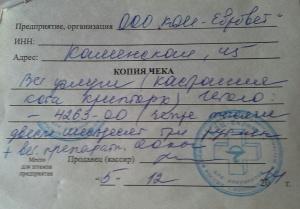 Предприятие, организация ООО "Ком-Евровет"
ИНН:
Адрес: Каменская, 45
КОПИЯ ЧЕКА
Вет услуги (кастрация
кота крипторх) Итого:
- 4263-00 (четыре тысячи
двести шестьдесят три рубля
+ вет. препараты. 00 коп
Место для штампа предприятия
Продавец (кассир)
-5- 12